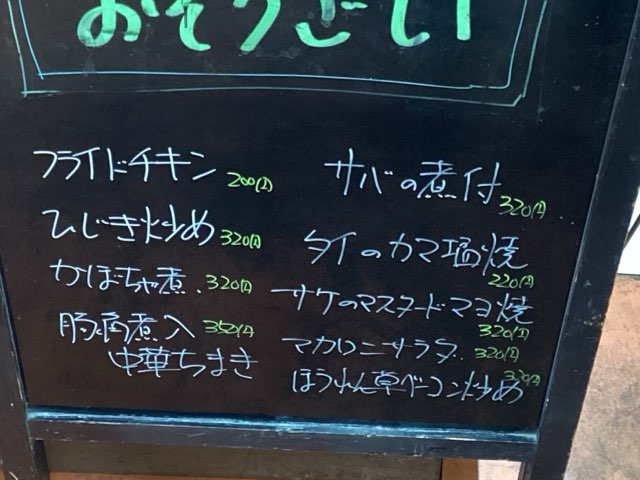 おそうざい
フライドチキン 200円
ひじき炒め 320円
かぼちゃ煮 320円
豚角煮入 350円
中華ちまき
サバの煮付 320円
タイのカマ塩焼 220円
サケのマスタードマヨ焼 320円
マカロニサラダ 320円
ほうれん草ベーコン炒め 320円